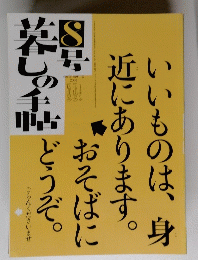 8号
暮しの手帖
いいものは、身
近にあります。
おそばに
どうぞ。